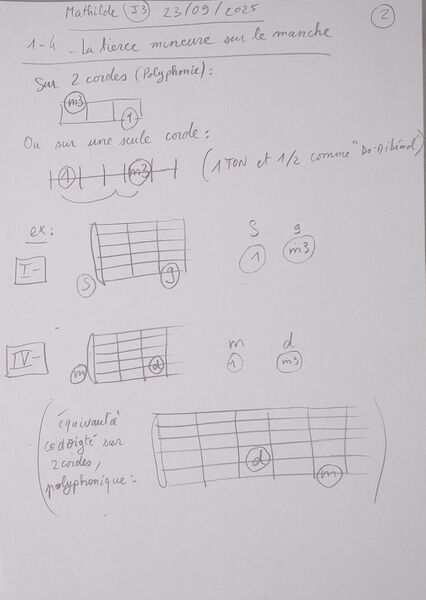 Mathilde (J3) 23/09/2025
2
1-4 - La tierce mineure sur le manche
Sur 2 cordes (Polyphonie) :
m3
1
Ou sur une seule corde :
1 m3 (1 TON et 1/2 comme "Do-Mibémol")
ex :
I-
S g
S g
1 m3
IV-
m d
m d
1 m3
(équivaut à
ce doigté sur
2 cordes,
polyphonique :
d
m